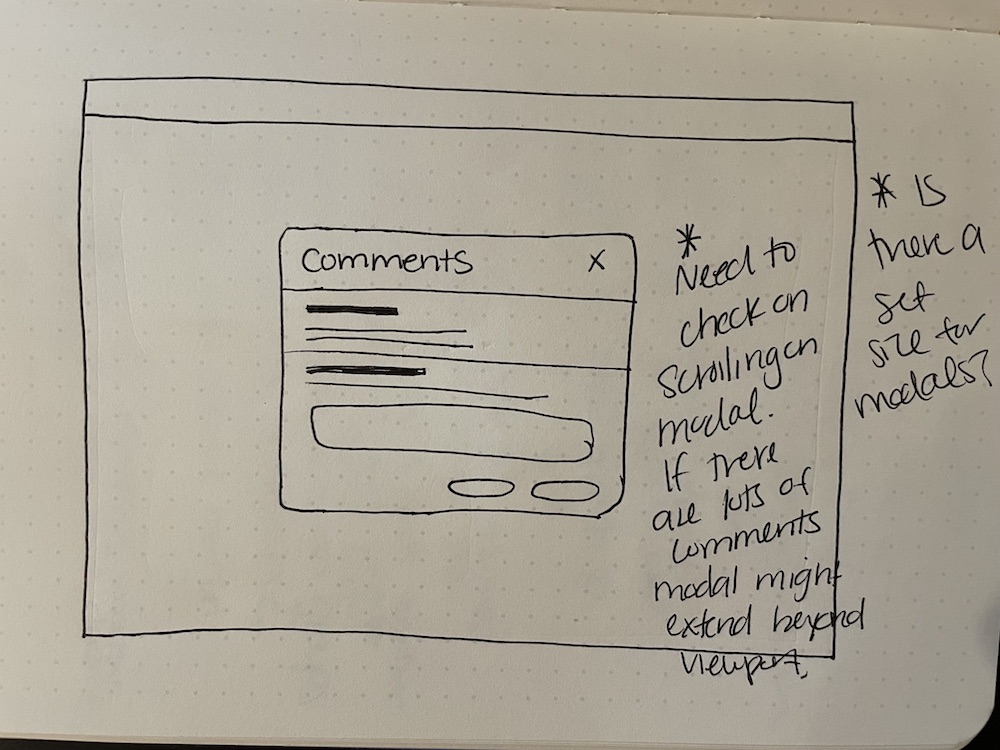 Comments X
*
Need to
check on
scrolling on
modal.
If there
are lots of
comments
modal might
extend beyond
viewport.
* Is
there a
set
size for
modals?